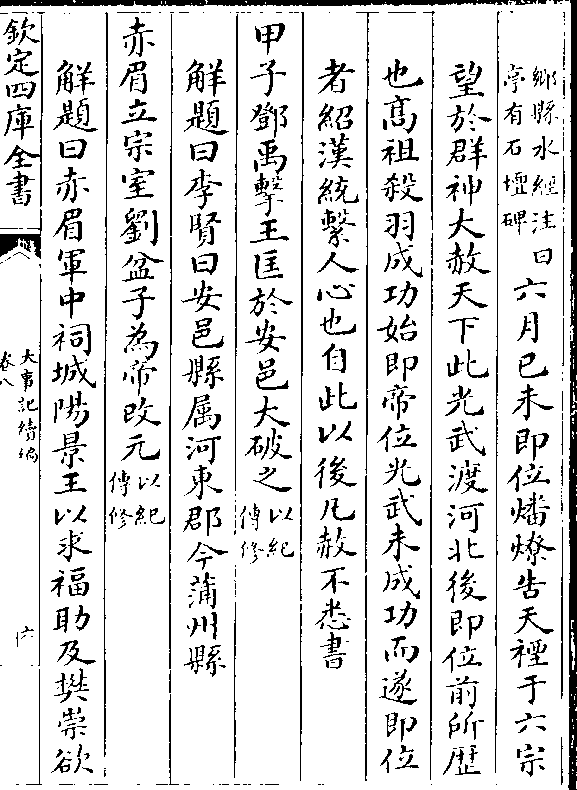 鄉縣水經注
亭有石壇碑
曰六月已未即位燔燎告天禋于六宗
望於群神大赦天下此光武渡河北後即位前所歴
也髙祖殺羽成功始即帝位光武未成功而遂即位
者紹漢統繫人心也自此以後凡赦不悉書
甲子鄧禹擊王匡於安邑大破之以紀
傳修
解題曰李賢曰安邑縣属河東郡今蒲州縣
赤眉立宗室劉盆子為帝改元以紀
傳修
解題曰赤眉軍中祠城陽景王以求福助及樊崇欲
欽定四庫全書
大事記續編
卷八
六